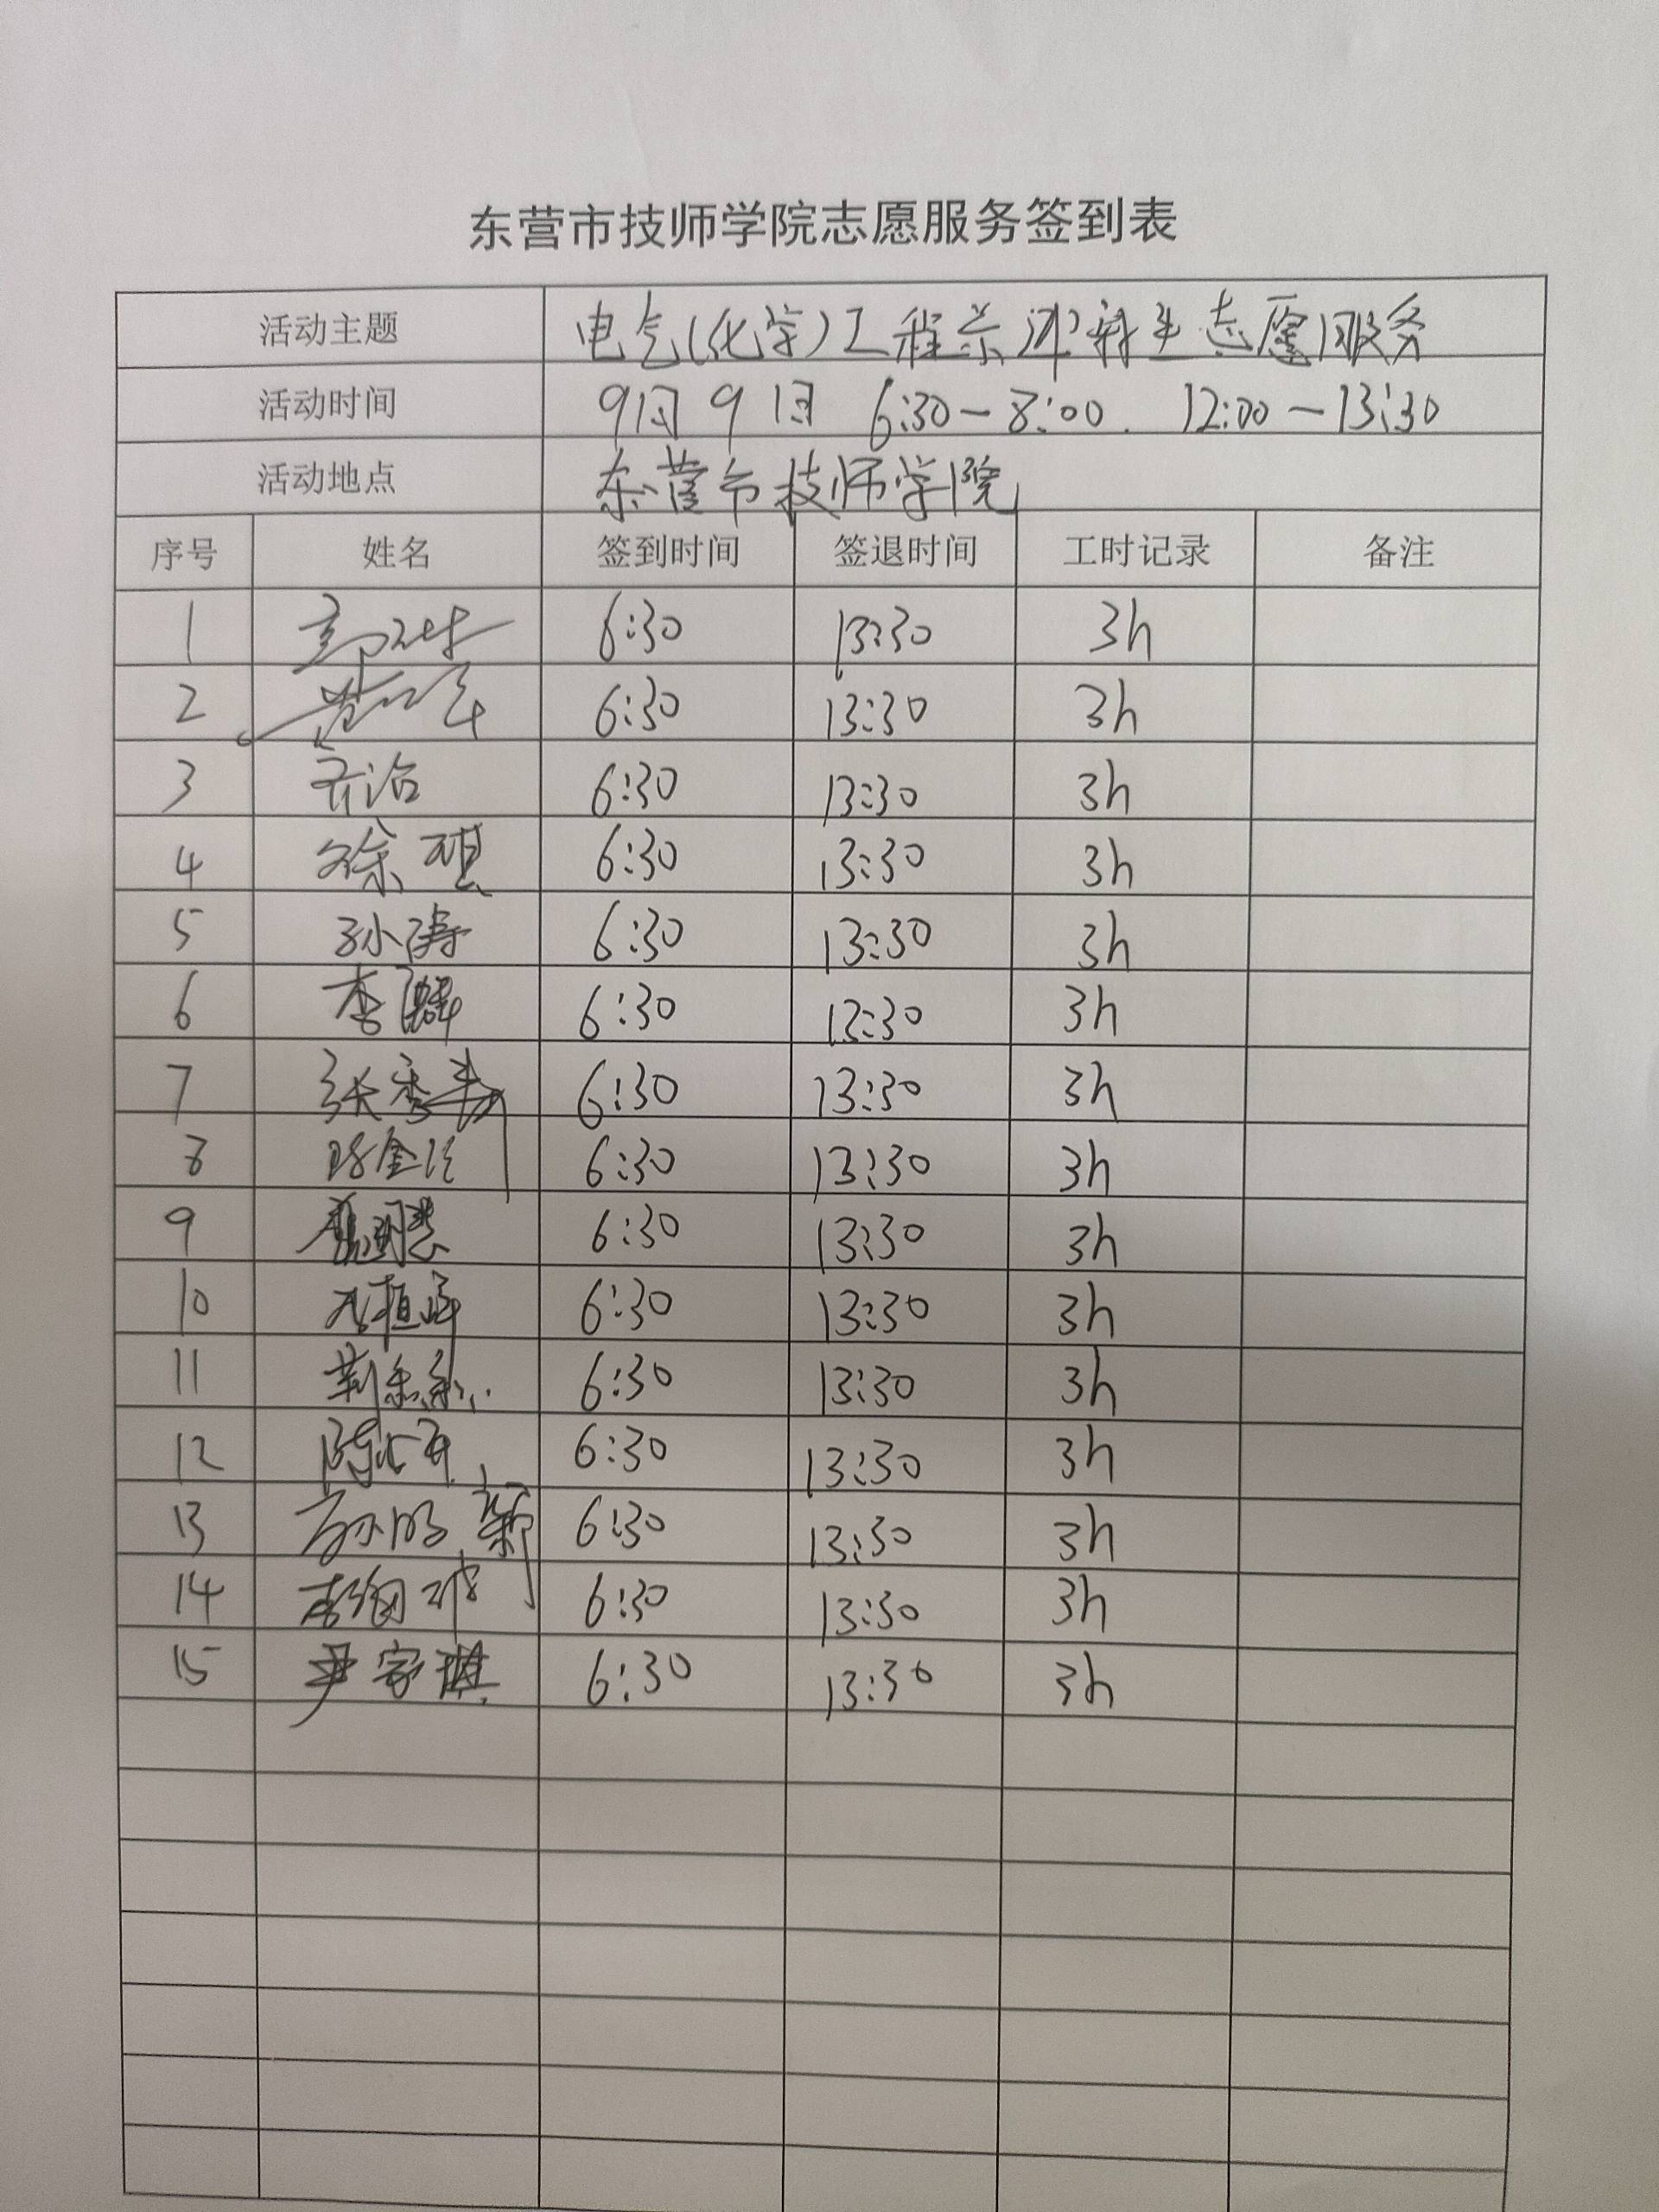 东营市技师学院志愿服务签到表
活动主题 电气(化学)工程系迎新生志愿服务
活动时间 9月9日 6:30-8:00. 12:00-13:30
活动地点 东营市技师学院
序号 姓名 签到时间 签退时间 工时记录 备注
1 6:30 13:30 3h
2 6:30 13:30 3h
3 齐治 6:30 13:30 3h
4 徐琪 6:30 13:30 3h
5 孙涛 6:30 13:30 3h
6 李 6:30 13:30 3h
7 张秀 6:30 13:30 3h
8 金 6:30 13:30 3h
9 6:30 13:30 3h
10 6:30 13:30 3h
11 6:30 13:30 3h
12 陈 6:30 13:30 3h
13 孙明新 6:30 13:30 3h
14 6:30 13:30 3h
15 尹家琪 6:30 13:30 3h